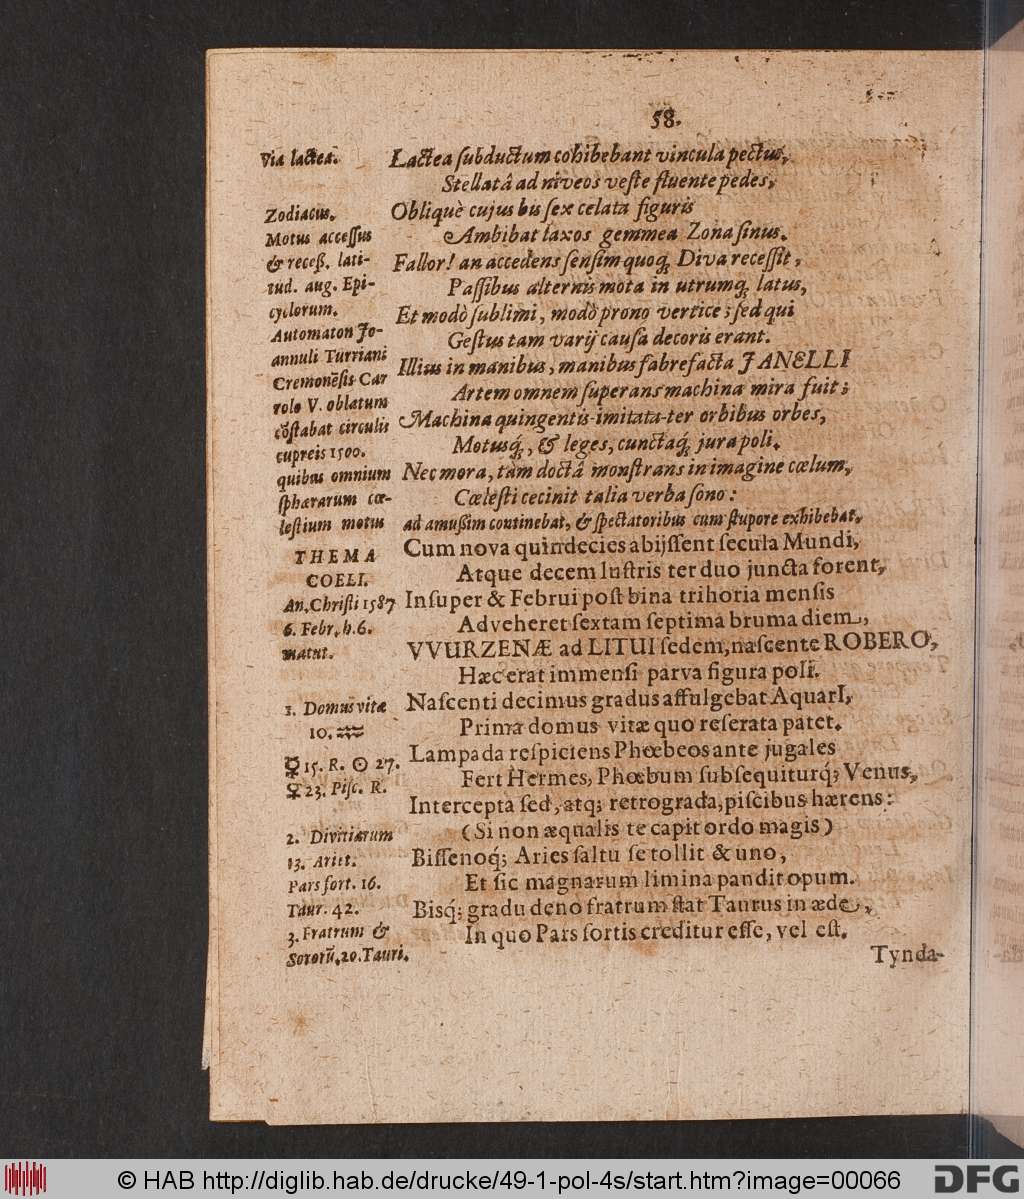 58.
Via lactea.
Lactea subductum cohibebant vincula pectus,
Stellatâ ad niveos veste fluente pedes,
Zodiacus.
Obliquè cujus bis sex celata figuris
Motus accessus
Ambibat laxos gemmea Zona sinus.
& receß. lati-
Fallor! an accedens sensim quoq́; Diva recessit,
tud. aug. Epi-
Passibus alternis mota in utrumq́; latus,
cyclorum.
Et modò sublimi, modò prono vertice; sed qui
Automaton Jo-
Gestus tam varij causa decoris erant.
annuli Turriani
Illius in manibus, manibus fabrefacta JANELLI
Cremonēsis Car
Artem omnem superans machina mira fuit;
rolo V. oblatum
Machina quingentis-imitata-ter orbibus orbes,
cōstabat circulis
Motusq́;, & leges, cunctaq́; jura poli.
cupreis 1500.
quibus omnium
Nec mora, tam doctâ monstrans in imagine cœlum,
sphærarum cœ-
Cœlesti cecinit talia verba sono:
lestium motus
ad amußim continebat, & spectatoribus cum stupore exhibebat.
THEMA
Cum nova quindecies abijssent secula Mundi,
COELI.
Atque decem lustris ter duo juncta forent,
An. Christi 1587
Insuper & Februi post bina trihoria mensis
6. Febr. h. 6.
Adveheret sextam septima bruma diem,
matut.
VVURZENÆ ad LITUI sedem, nascente ROBERO,
Hæc erat immensi parva figura poli.
1. Domus vitæ
Nascenti decimus gradus affulgebat AquarI,
10. ♒
Prima domus vitæ quo reserata patet.
Lampada respiciens Phœbeos ante jugales
☿ 15. R. ☉ 27.
Fert Hermes, Phœbum subsequiturq́; Venus,
♀ 23. Pisc. R.
Intercepta sed, atq; retrograda, piscibus hærens:
2. Divitiarum
(Si non æqualis te capit ordo magis)
13. Ariet.
Bissenoq́; Aries saltu se tollit & uno,
Pars fort. 16.
Et sic magnarum limina pandit opum.
Taur. 42.
Bisq́; gradu deno fratrum stat Taurus in æde,
3. Fratrum &
In quo Pars sortis creditur esse, vel est.
Sororū. 20. Tauri.
Tynda-
© HAB http://diglib.hab.de/drucke/49-1-pol-4s/start.htm?image=00066
DFG